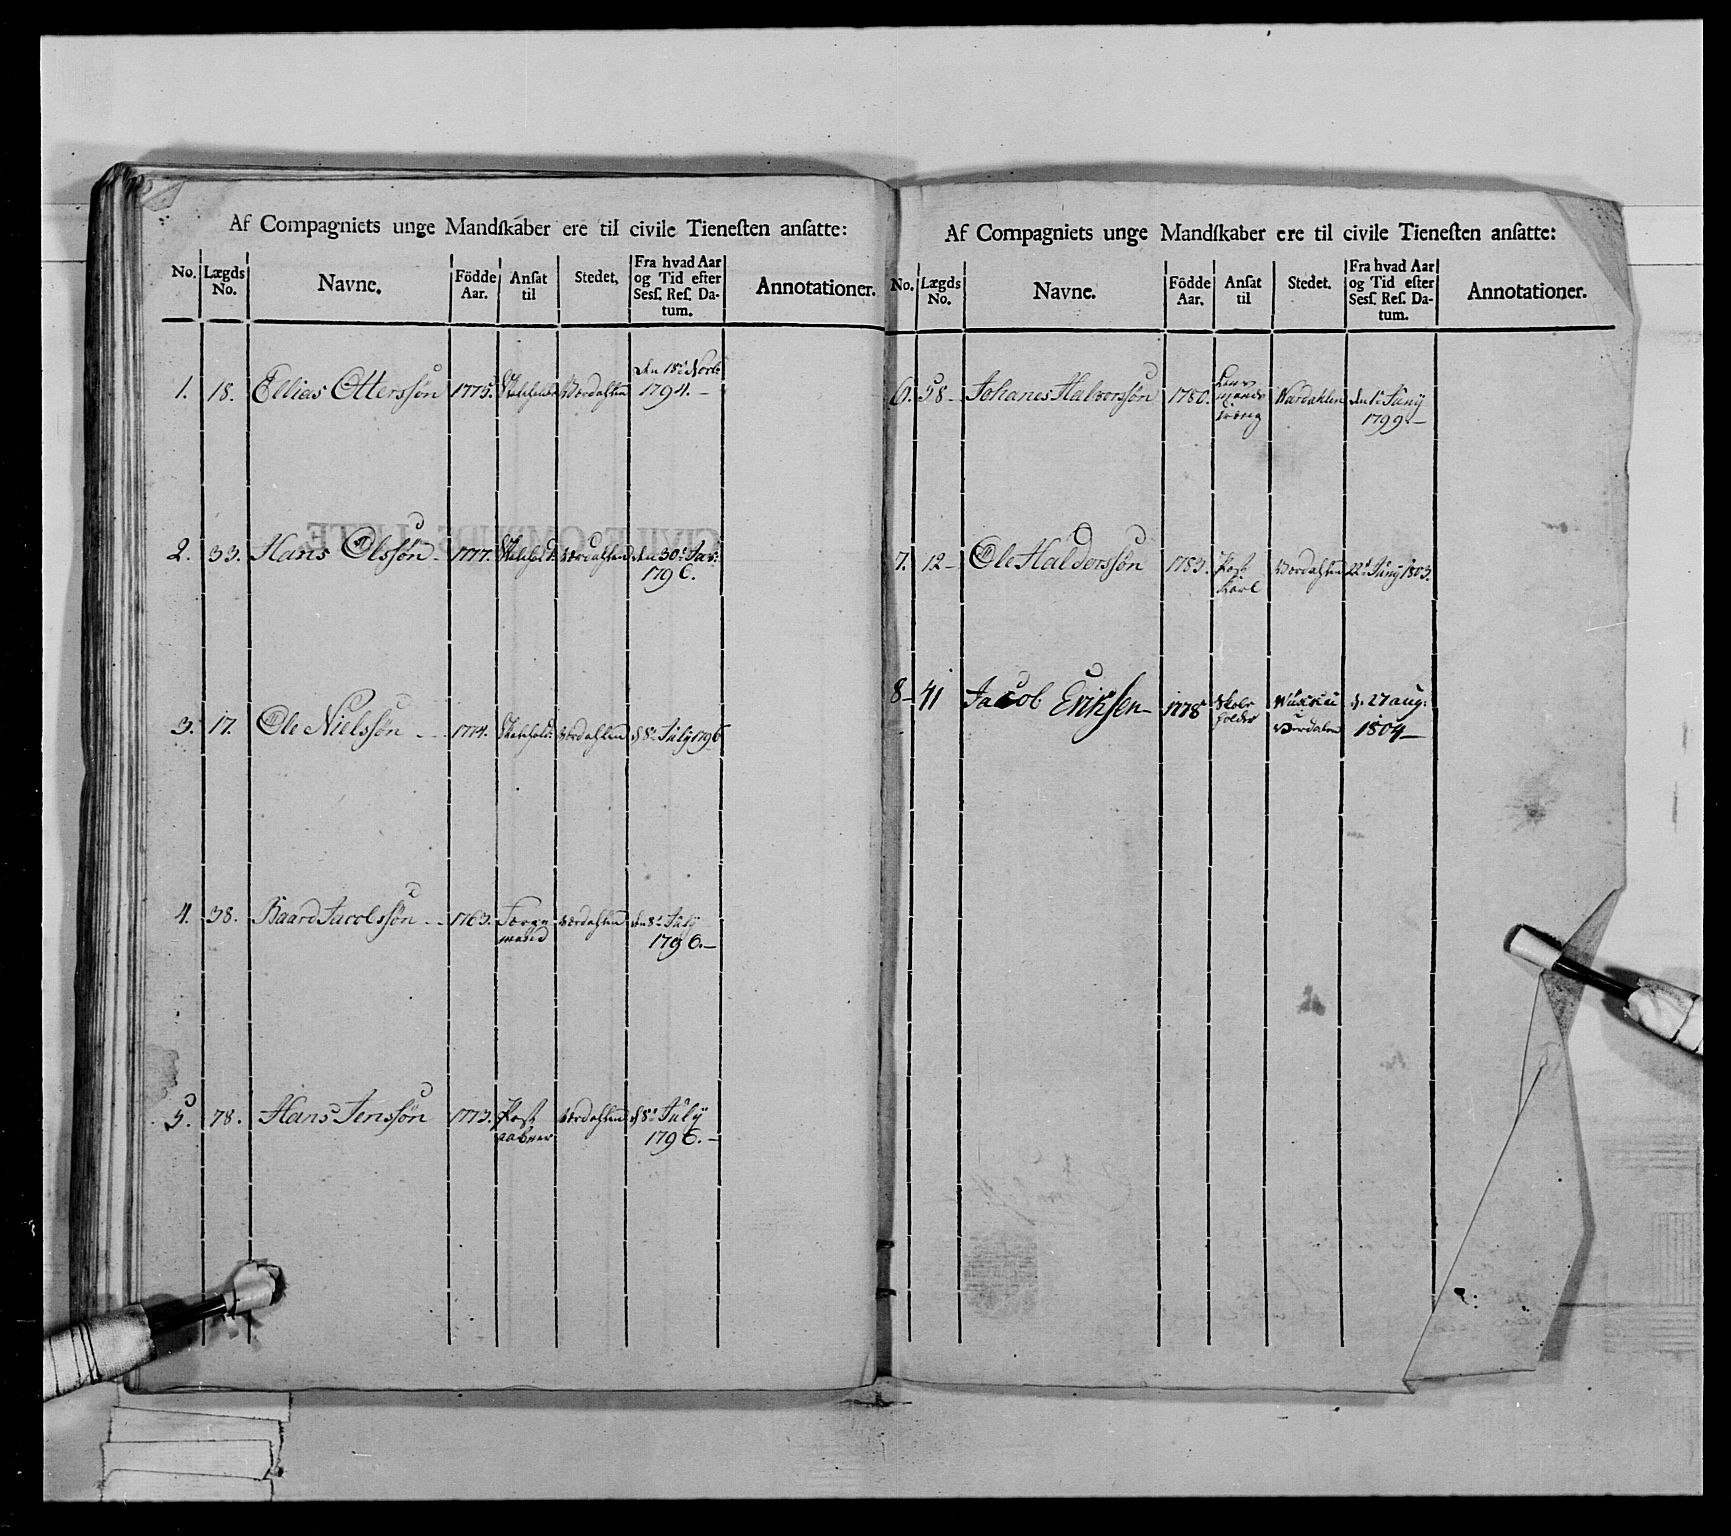 Af Compagniets unge Mandſkaber ere til civile Tieneſten anſatte:
No. Lægds No. Navne. Födde Aar. Anſat til Stedet, Fra hvad Aar og Tid efter Sesſ. Reſ. Datum. Annotationer.
1. 18. Ellias Otterssøn 1775. Værdahlen den 18de Novb:
1794.
2. 33. Hans Olssøn 1777. Værdahlen den 30te Jan:
1796.
3. 17. Ole Nielssøn 1774. Værdahlen d 8de July 1796
4. 38. Baard Jacobssøn 1763. Værdahlen den 8de July
mand 1796.
5. 78. Hans Jenssøn 1773. Post Værdahlen d 8de July
aabner 1796.
Af Compagniets unge Mandſkaber ere til civile Tieneſten anſatte:
No. Lægds No. Navne. Födde Aar. Anſat til Stedet. Fra hvad Aar og Tid efter Sesſ. Reſ. Datum. Annotationer.
6. 58 Johanes Halvorssøn 1780. Lens
mands
dreng Værdahlen den 1te Juny
1799
7. 12 Ole Haldorssøn 1783. Post
karl Værdahlen 22de Juny 1803.
8 41 Jacob Eriksen 1778 Skole
holder
Værdalen d. 27 aug:
1804
CIVILE OMBUDS LISTE